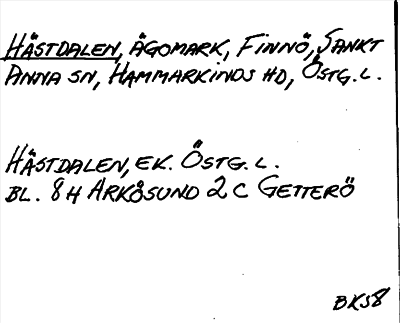 HÄSTDALEN, ÄGOMARK, FINNÖ, SANKT
ANNA SN, HAMMARKINDS HD, ÖSTG. L.
HÄSTDALEN, EK. ÖSTG. L.
BL. 8 H ARKÖSUND 2 C GETTERÖ
BKS8